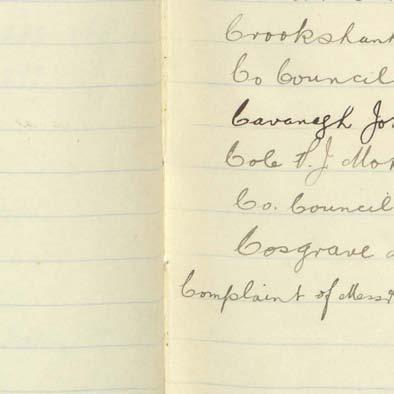 Crookshank
Co Council
Cavanagh Jos
Cole P. J. Mo
Co. Council
Cosgrave
Complaint of Mess